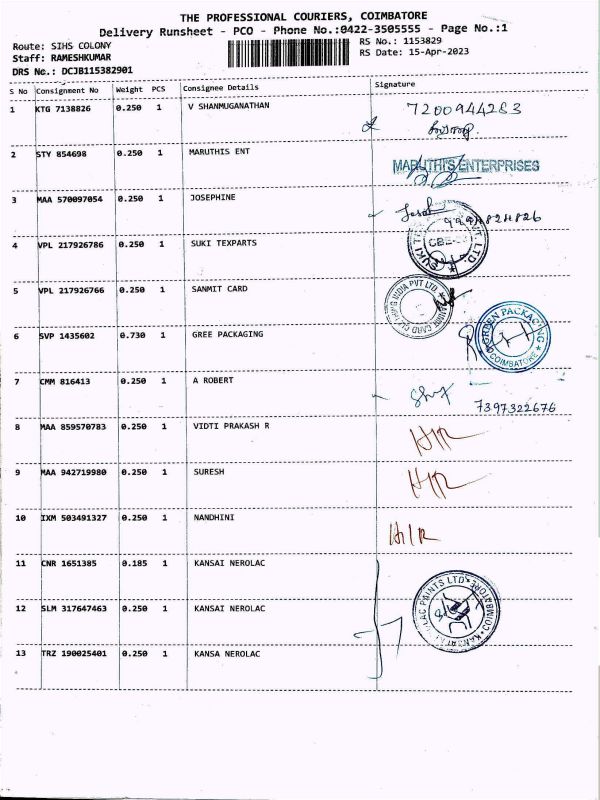 THE PROFESSIONAL COURIERS, COIMBATORE
Delivery Runsheet - PCO - Phone No.:0422-3505555 - Page No.:1
Route: SIHS COLONY
Staff: RAMESHKUMAR
DRS No.: DCJB115382901
RS No.: 1153829
RS Date: 15-Apr-2023
S No Consignment No Weight PCS Consignee Details Signature
1 KTG 7138826 0.250 1 V SHANMUGANATHAN 7200944283
2 STY 854698 0.250 1 MARUTHIS ENT MARUTHI'S ENTERPRISES
3 MAA 570097054 0.250 1 JOSEPHINE
4 VPL 217926786 0.250 1 SUKI TEXPARTS SUKI LTD.
5 VPL 217926766 0.250 1 SANMIT CARD CARD CLOTHING INDIA PVT LTD.
6 SVP 1435602 0.730 1 GREE PACKAGING PACKAGING COIMBATORE
7 CMM 816413 0.250 1 A ROBERT 7397322676
8 MAA 859570783 0.250 1 VIDTI PRAKASH R H/R
9 MAA 942719980 0.250 1 SURESH H/R
10 IXM 503491327 0.250 1 NANDHINI H/R
11 CNR 1651385 0.185 1 KANSAI NEROLAC
12 SLM 317647463 0.250 1 KANSAI NEROLAC PAINTS LTD. COIMBATORE
13 TRZ 190025401 0.250 1 KANSA NEROLAC